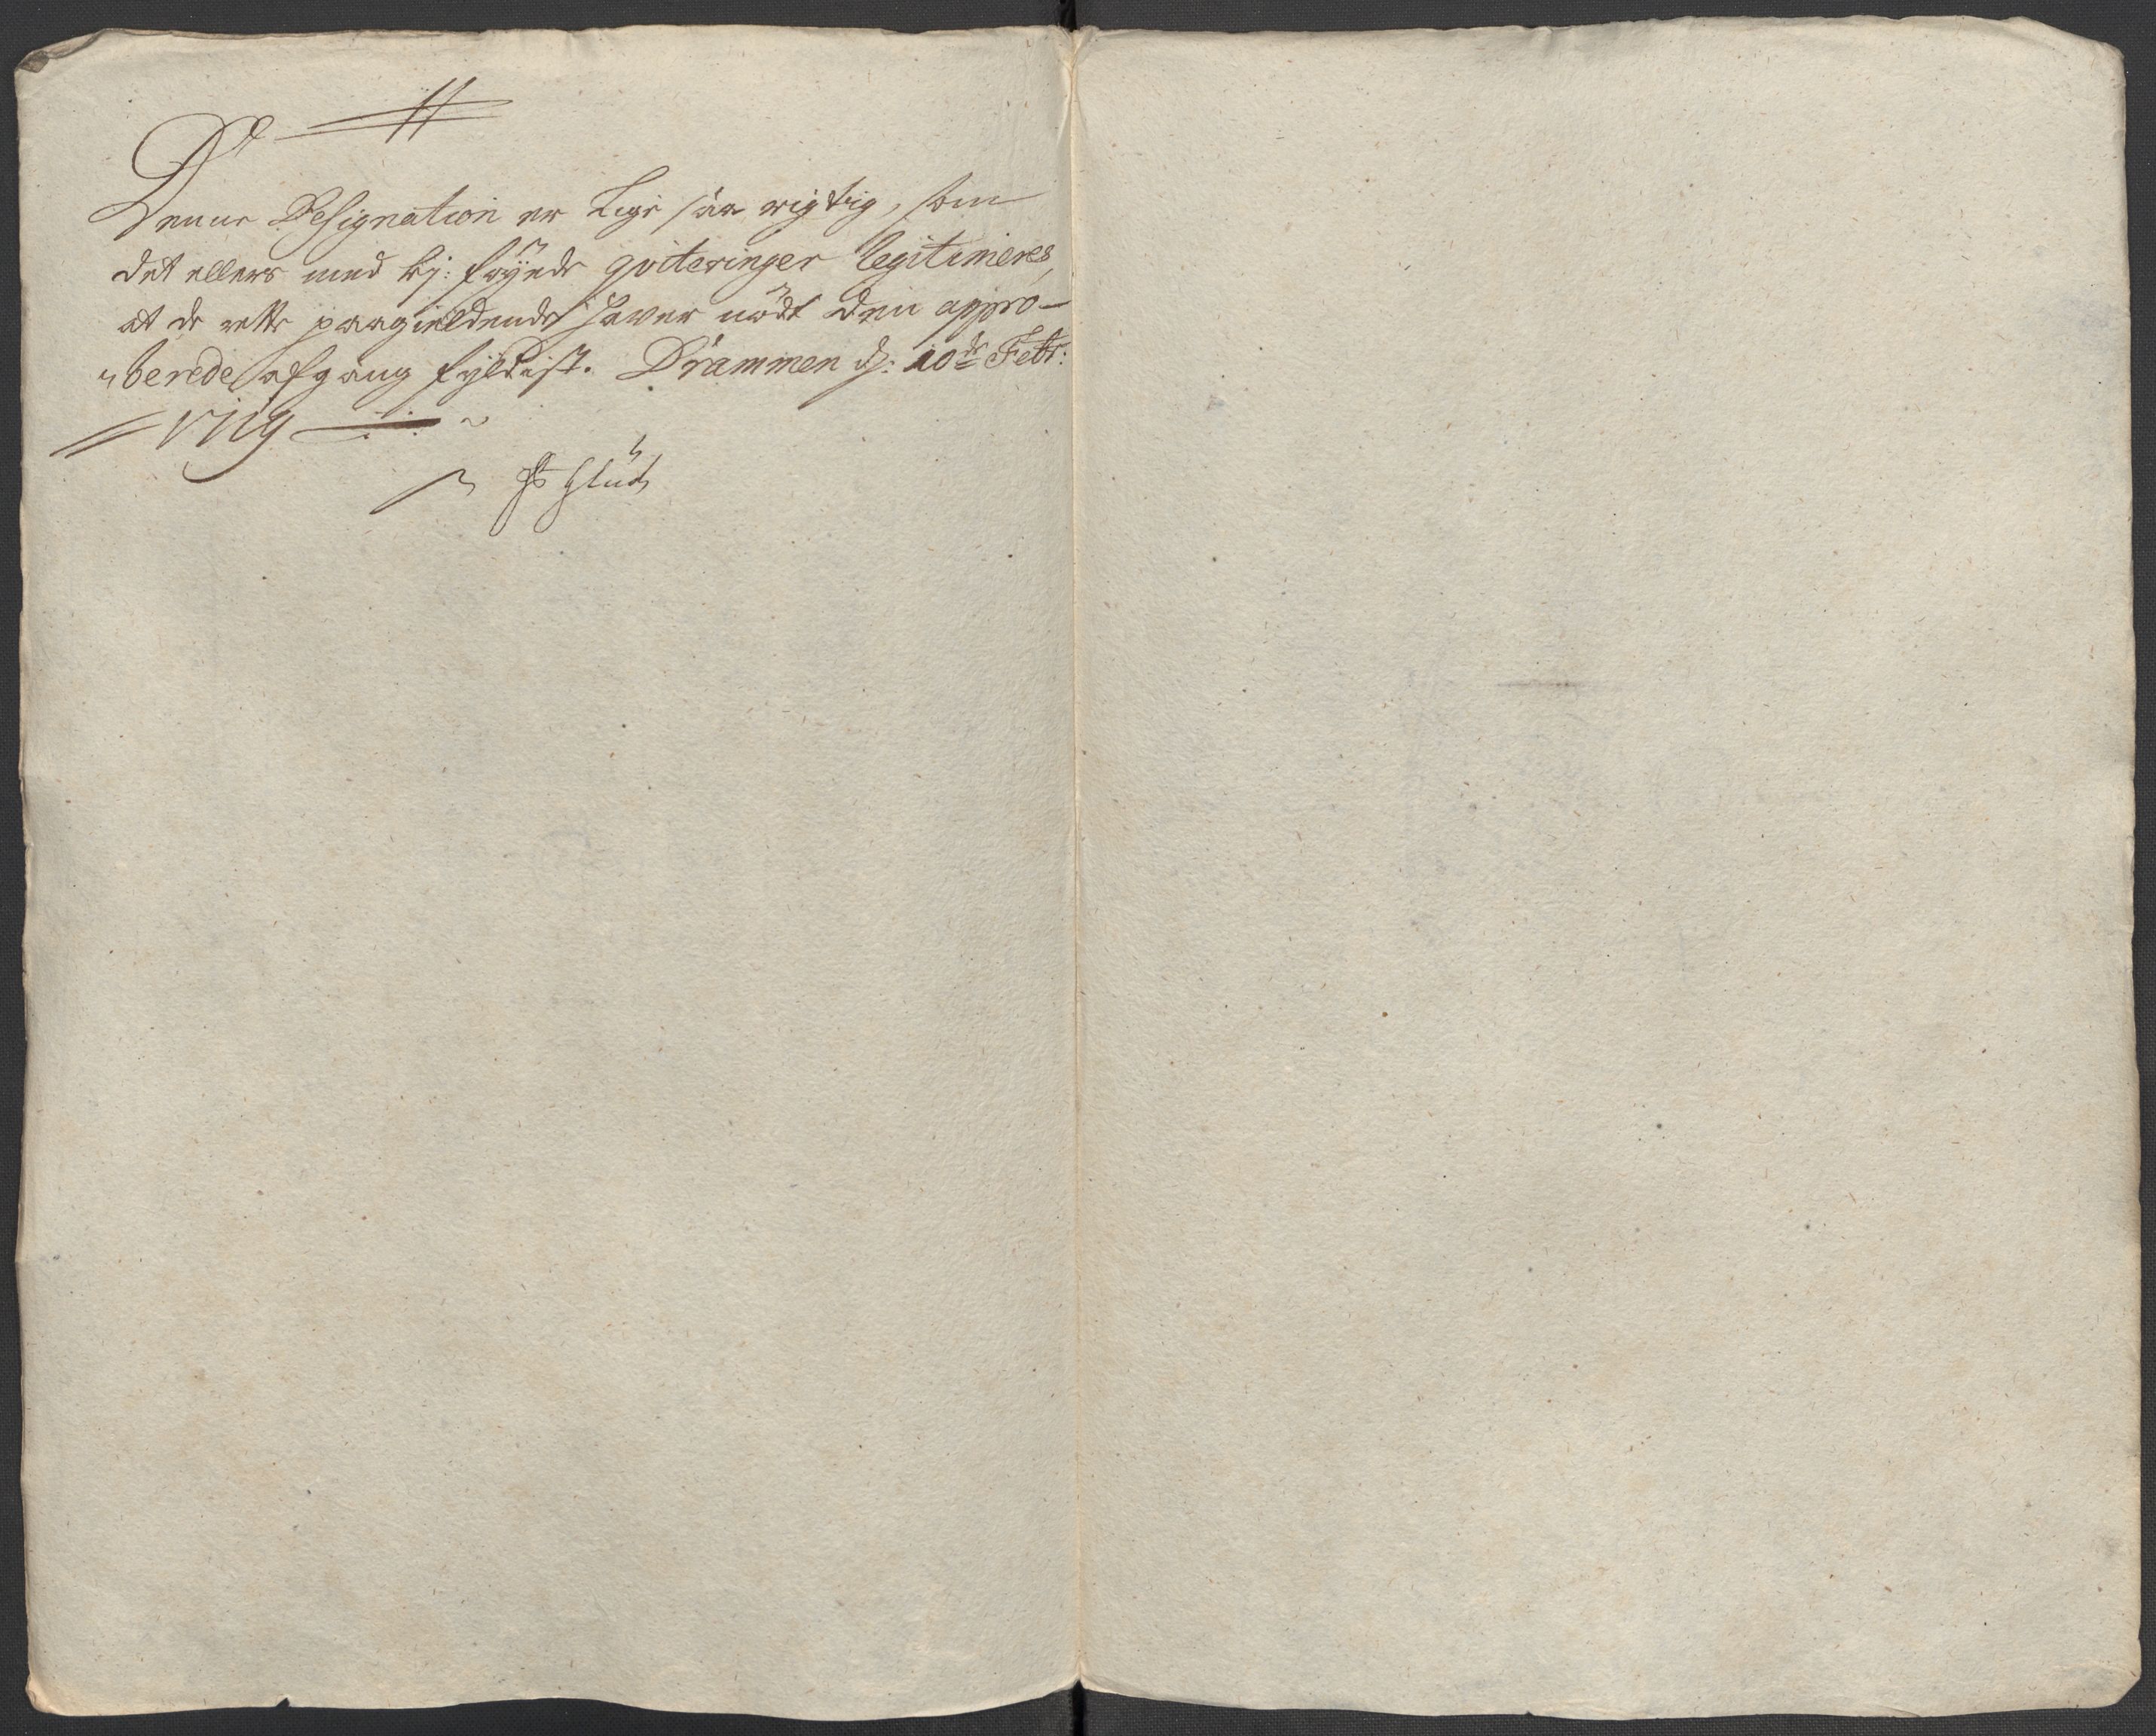 Denne Designation er lige saa rigtig, som
det ellers med bj: föyede qviteringer legitimeres,
at de rette paagieldende haver nödt den appro-
berede afgang fyldist. Drammen d: 10de Febr:
1719
Glud